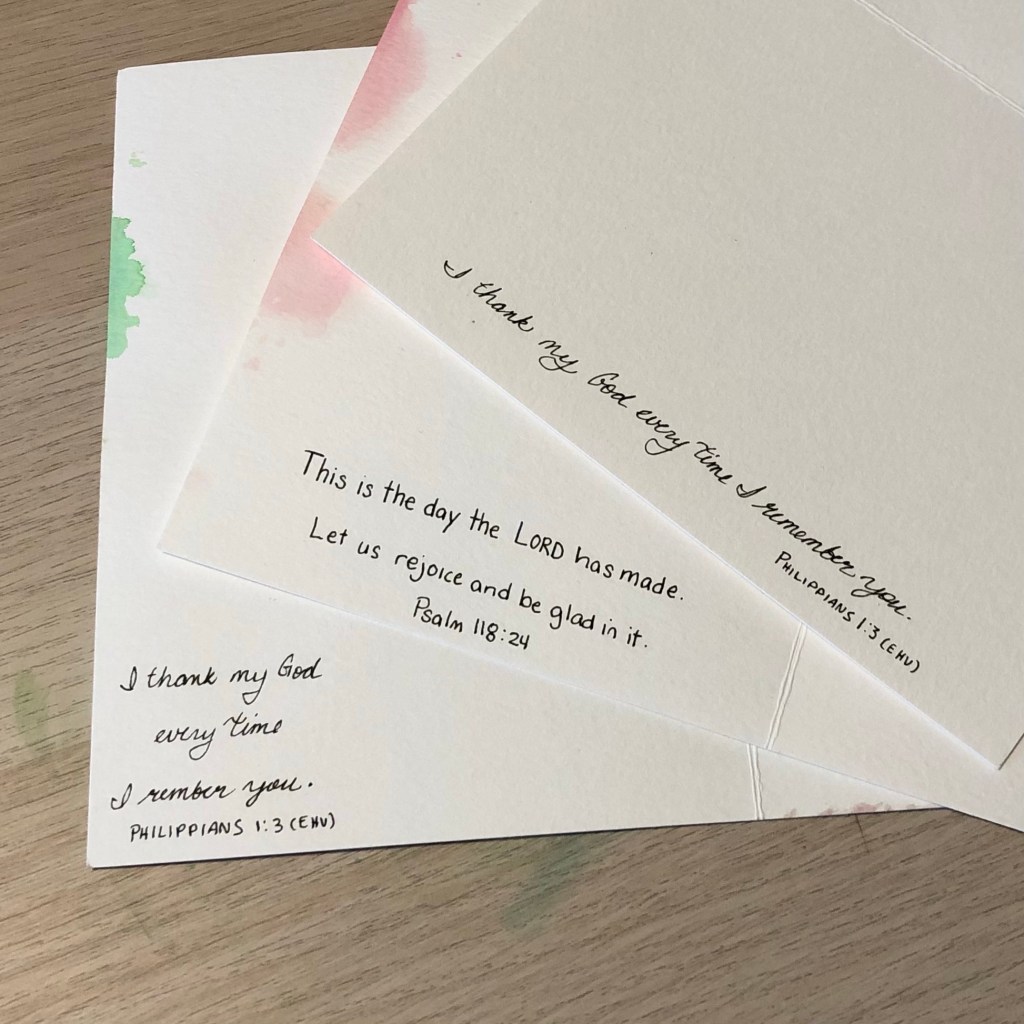 I thank my God every time I remember you.
PHILIPPIANS 1:3 (EHV)
This is the day the LORD has made.
Let us rejoice and be glad in it.
Psalm 118:24
I thank my God
every time
I rember you.
PHILIPPIANS 1:3 (EHV)